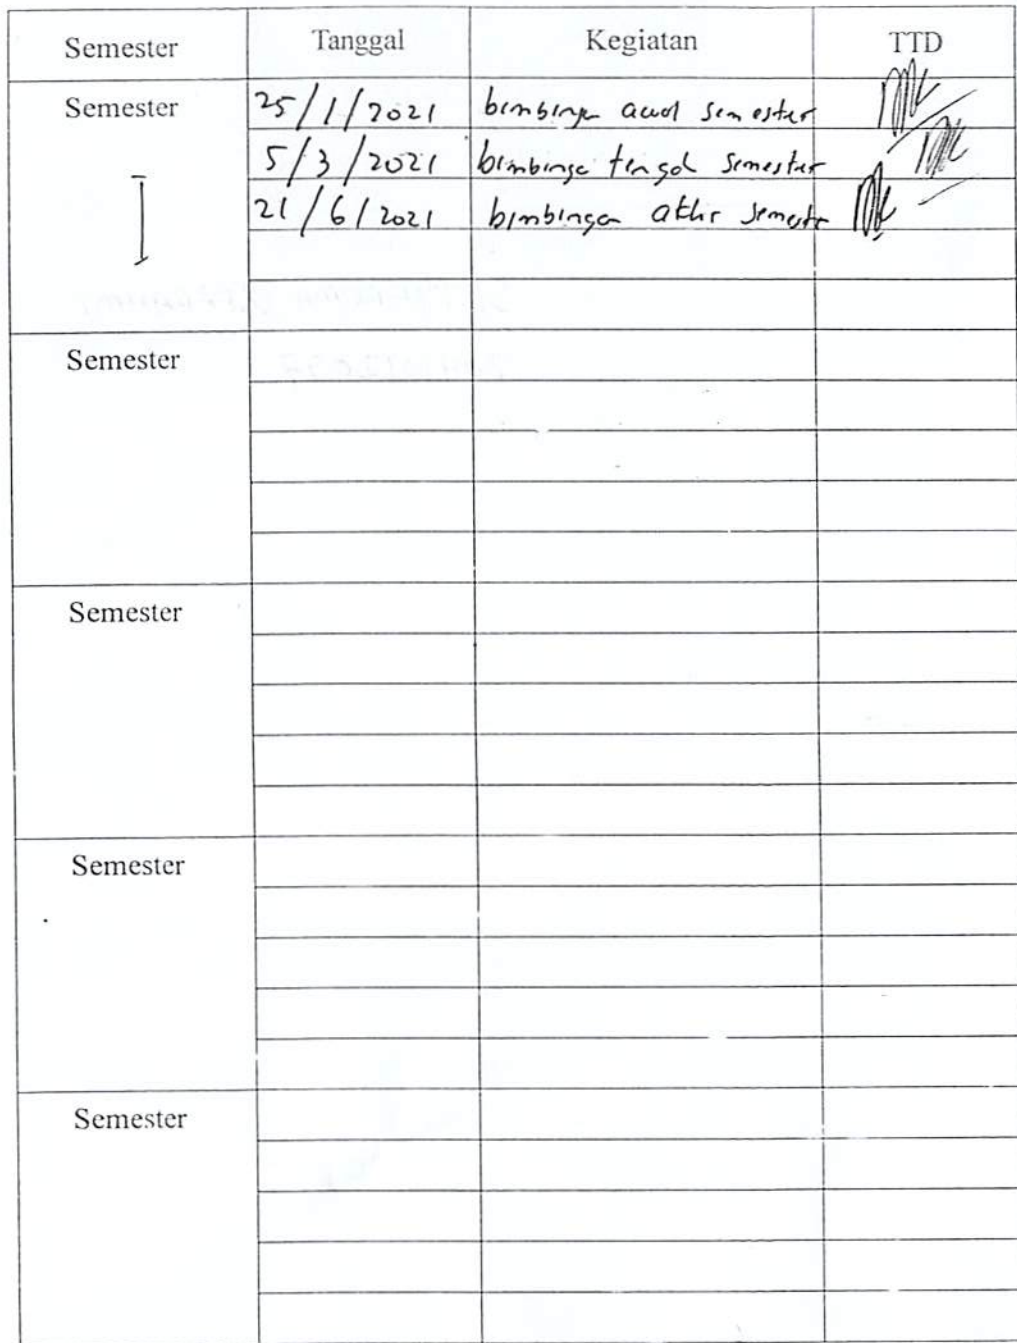 Semester Tanggal Kegiatan TTD
Semester 25/1/2021 bimbingan awal semester
5/3/2021 bimbinga tengah semester
I 21/6/2021 bimbingan akhir semester
Semester
Semester
Semester
Semester